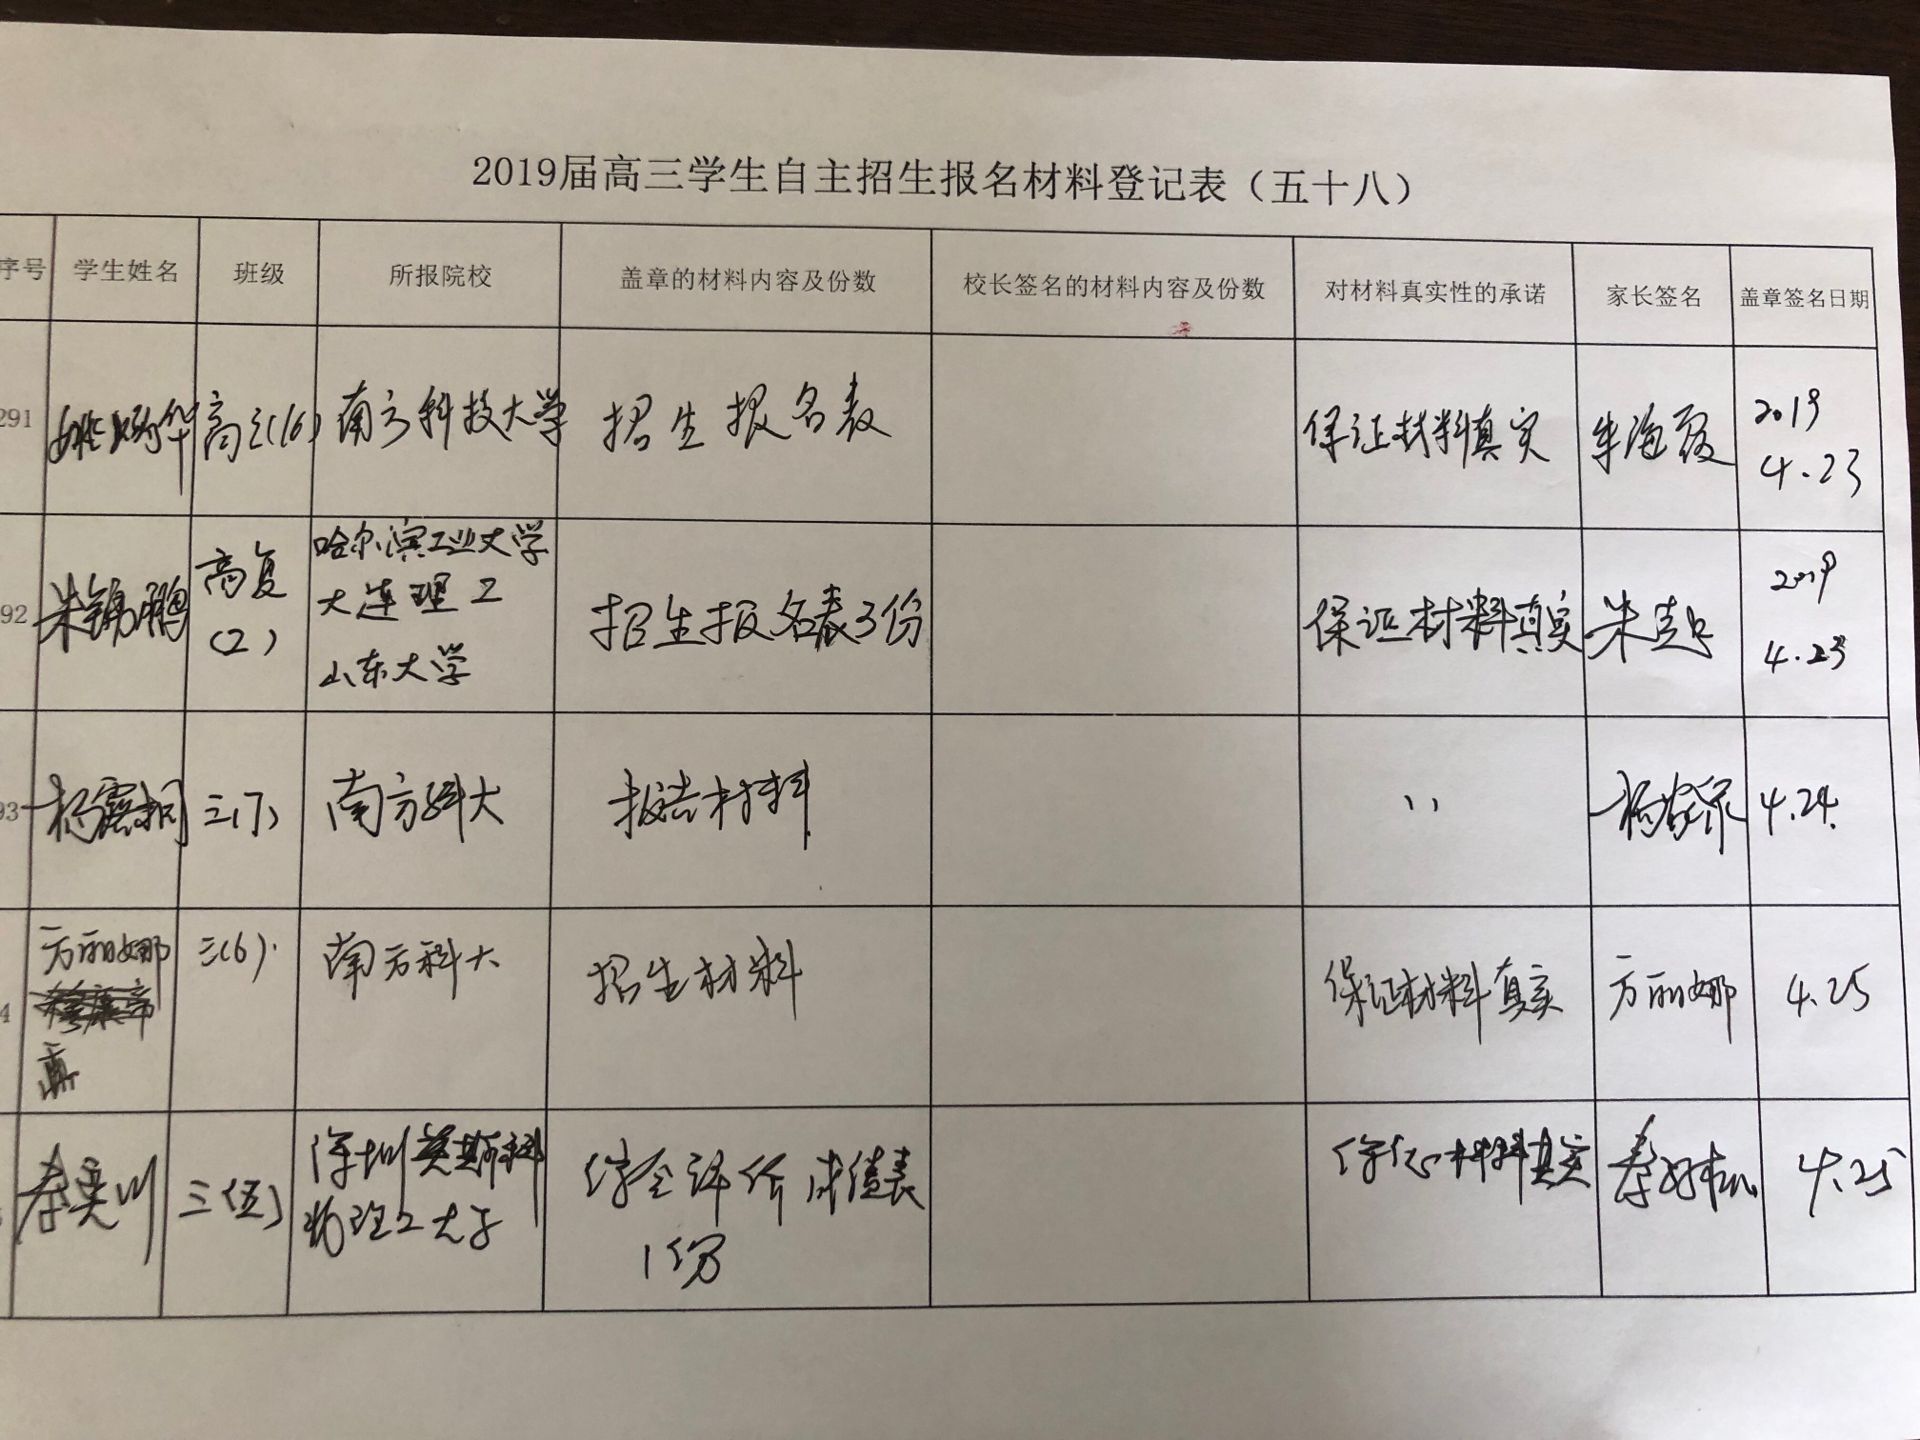 2019届高三学生自主招生报名材料登记表（五十八）
序号 学生姓名 班级 所报院校 盖章的材料内容及份数 校长签名的材料内容及份数 对材料真实性的承诺 家长签名 盖章签名日期
291 高三(16) 南方科技大学 招生报名表 保证材料真实 朱海霞 2019
4.23
92 朱锡鹏 高复
(2) 哈尔滨工业大学
大连理工
山东大学 招生报名表3份 保证材料真实 2019
4.23
93 三(7) 南方科大 报告材料 〃 4.24.
4 方丽娜 三(6). 南方科大 招生材料 保证材料真实 方丽娜 4.25
秦奕川 三(五) 深圳莫斯科
物理工大学 综合评价成绩表
1份 保证材料真实 4.25